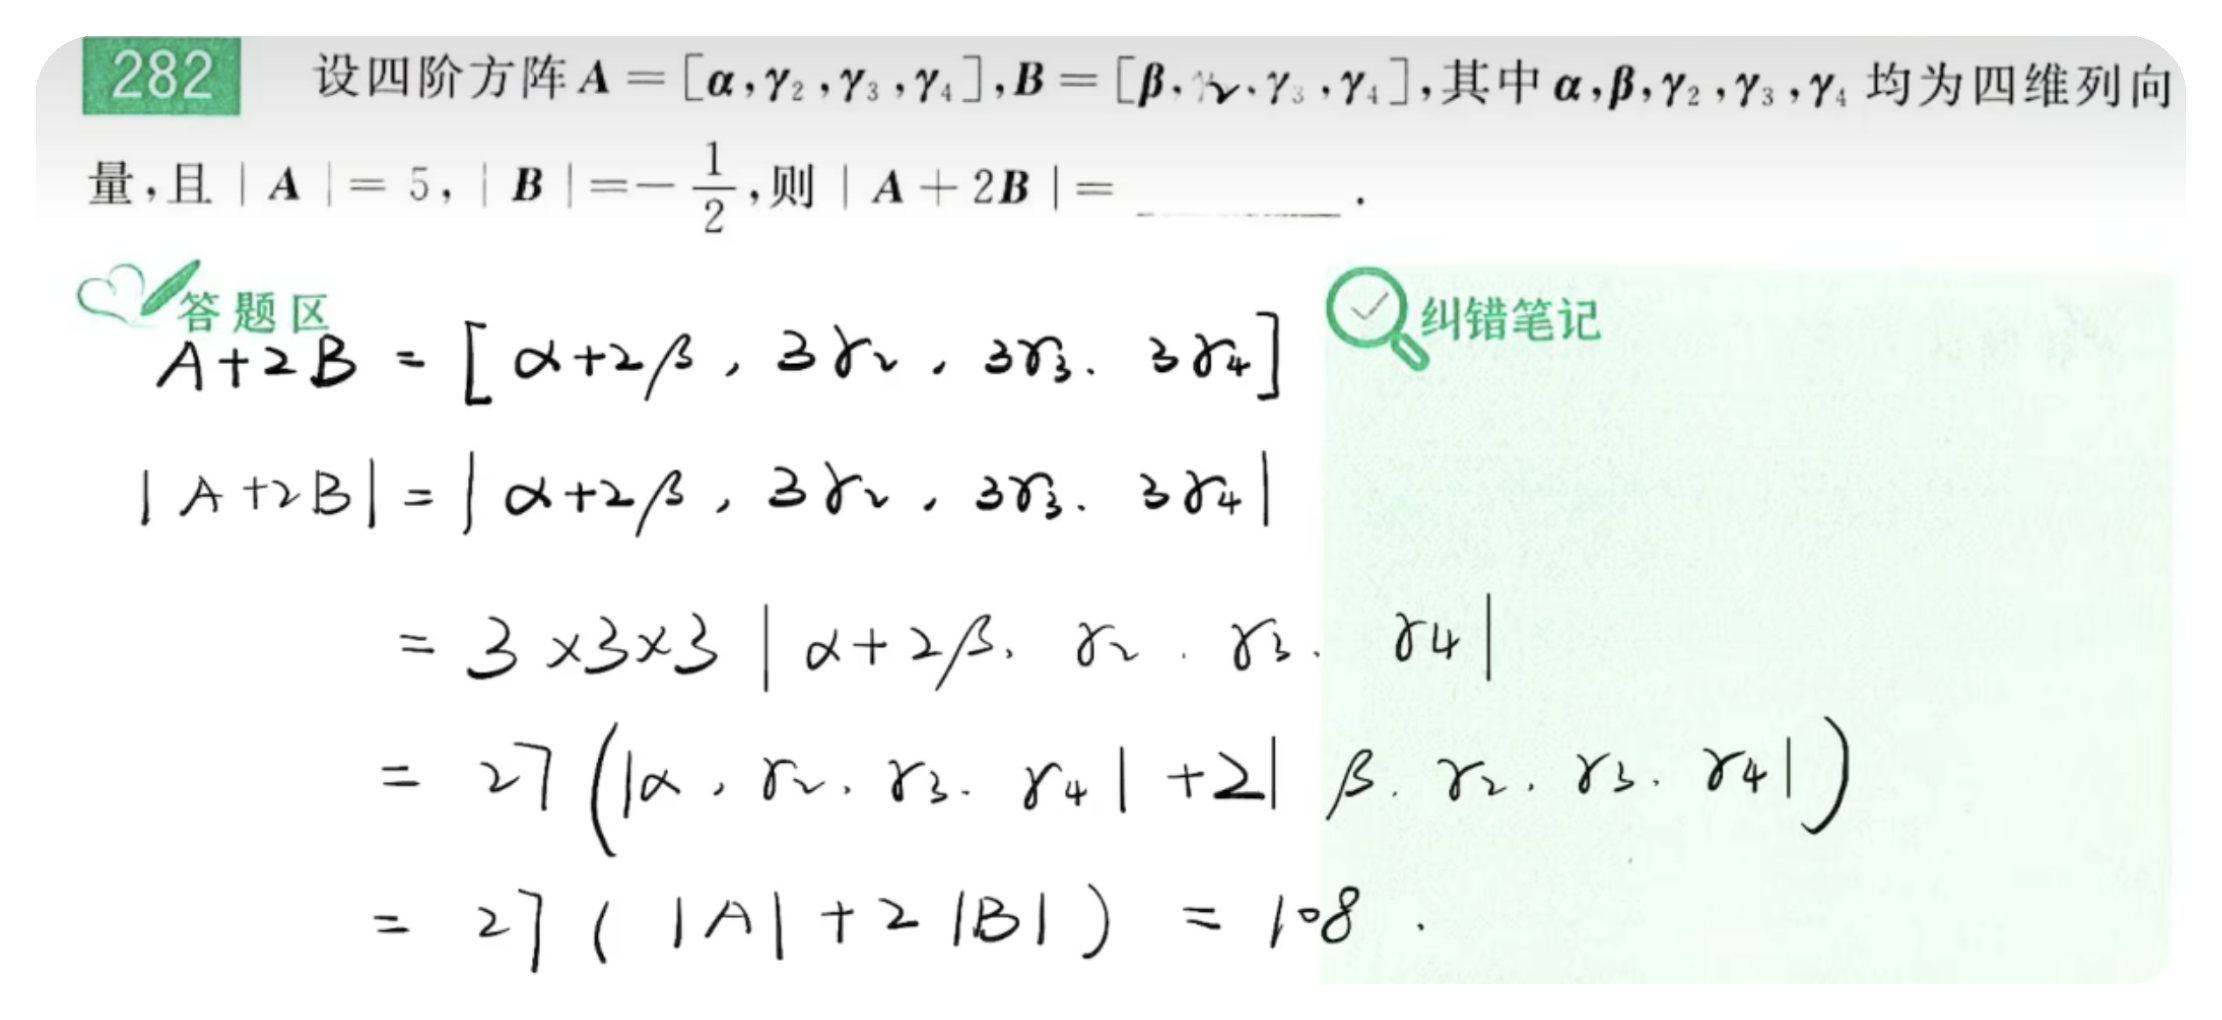 282 设四阶方阵 A = [α, γ₂, γ₃, γ₄], B = [β, γ₂, γ₃, γ₄], 其中 α, β, γ₂, γ₃, γ₄ 均为四维列向
量, 且 | A | = 5, | B | = -1/2, 则 | A + 2B | = ________.
答题区
纠错笔记
A+2B = [α+2β, 3γ₂, 3γ₃. 3γ₄]
|A+2B| = |α+2β, 3γ₂, 3γ₃. 3γ₄|
= 3×3×3 |α+2β. γ₂. γ₃. γ4|
= 27(|α, γ₂. γ₃. γ₄| +2| β. γ₂. γ₃. γ4|)
= 27(|A|+2|B|) = 108.